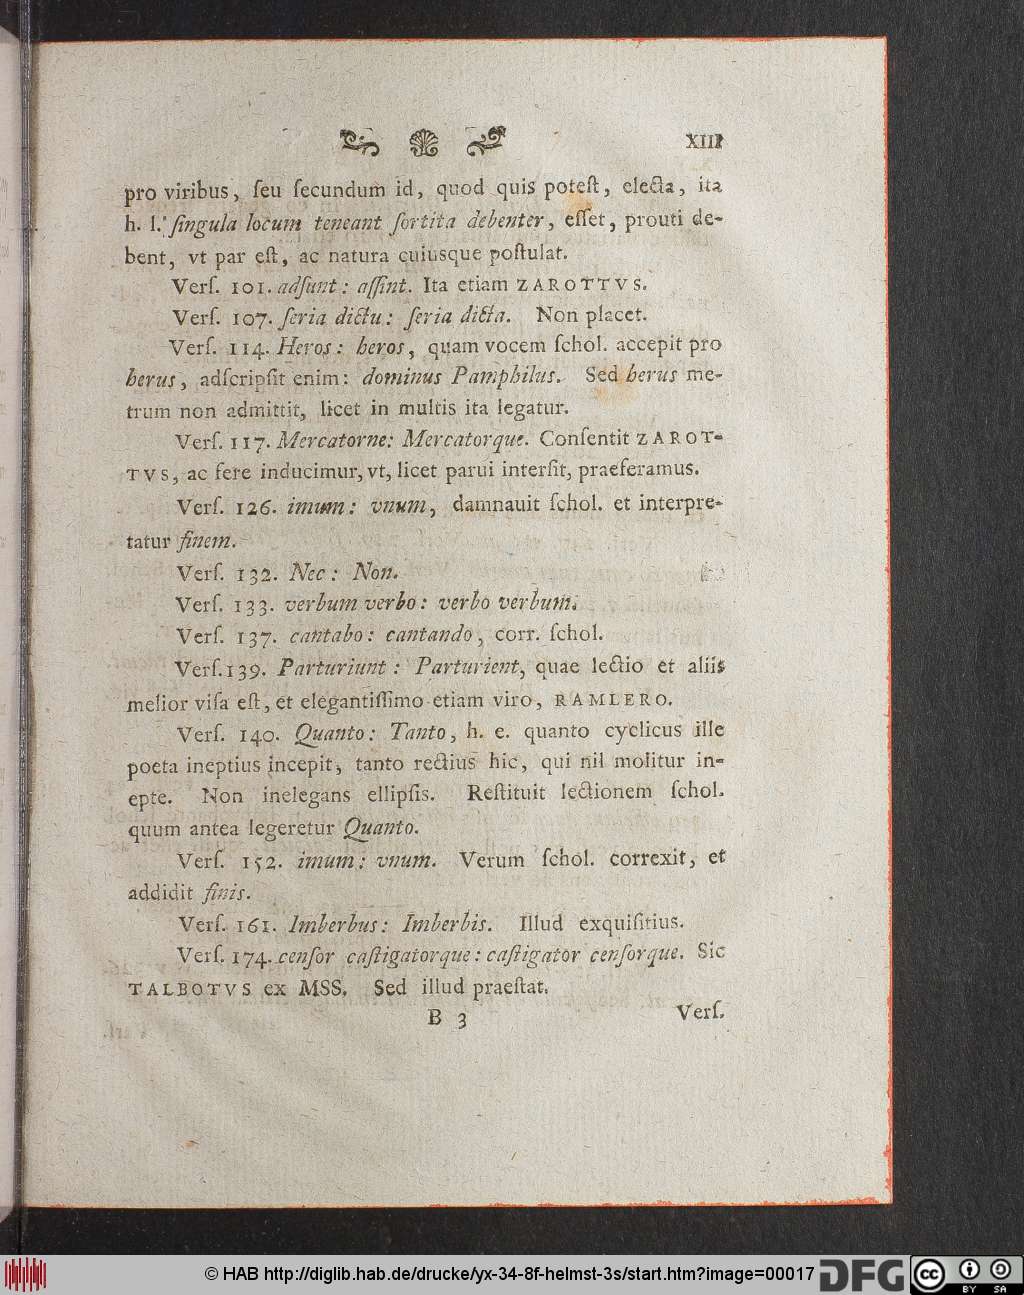 XIII
pro viribus, ſeu ſecundum id, quod quis poteſt, electa, ita
h. l. ſingula locum teneant ſortita debenter, eſſet, prouti de-
bent, vt par eſt, ac natura cuiusque poſtulat.
Verſ. 101. adſunt: aſſint. Ita etiam ZAROTTVS.
Verſ. 107. ſeria dictu: ſeria dicta. Non placet.
Verſ. 114. Heros: heros, quam vocem ſchol. accepit pro
herus, adſcripſit enim: dominus Pamphilus. Sed herus me-
trum non admittit, licet in multis ita legatur.
Verſ. 117. Mercatorne: Mercatorque. Conſentit ZAROT-
TVS, ac fere inducimur, vt, licet parui interſit, praeferamus.
Verſ. 126. imum: vnum, damnauit ſchol. et interpre-
tatur finem.
Verſ. 132. Nec: Non.
Verſ. 133. verbum verbo: verbo verbum.
Verſ. 137. cantabo: cantando, corr. ſchol.
Verſ. 139. Parturiunt: Parturient, quae lectio et aliis
melior viſa eſt, et elegantiſſimo etiam viro, RAMLERO.
Verſ. 140. Quanto: Tanto, h. e. quanto cyclicus ille
poeta ineptius incepit, tanto rectius hic, qui nil molitur in-
epte. Non inelegans ellipſis. Reſtituit lectionem ſchol.
quum antea legeretur Quanto.
Verſ. 152. imum: vnum. Verum ſchol. correxit, et
addidit finis.
Verſ. 161. Imberbus: Imberbis. Illud exquiſitius.
Verſ. 174. cenſor caſtigatorque: caſtigator cenſorque. Sic
TALBOTVS ex MSS. Sed illud praeſtat.
B 3 Verſ.
© HAB http://diglib.hab.de/drucke/yx-34-8f-helmst-3s/start.htm?image=00017 DFG cc BY SA